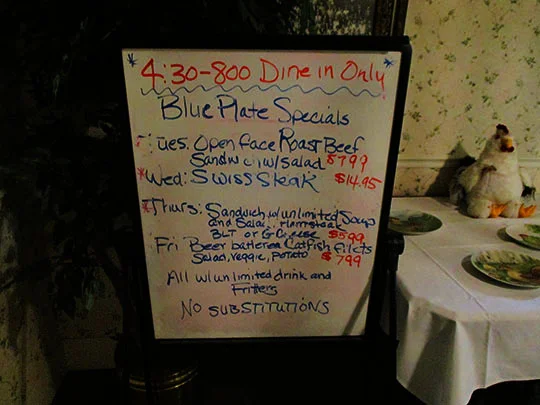 4:30-800 Dine in Only
Blue Plate Specials
Tues: Open face Roast Beef
Sandwich w/salad $799
*Wed: Swiss Steak $14.95
*Thurs: Sandwich w/unlimited Soup
and Salad. Ham steak
BLT or G-Cheese $599
Fri Beer battered Catfish filets
Salad, veggie, potato $799
All w/unlimited drink and
Fritters
No SUBSTITUTIONS